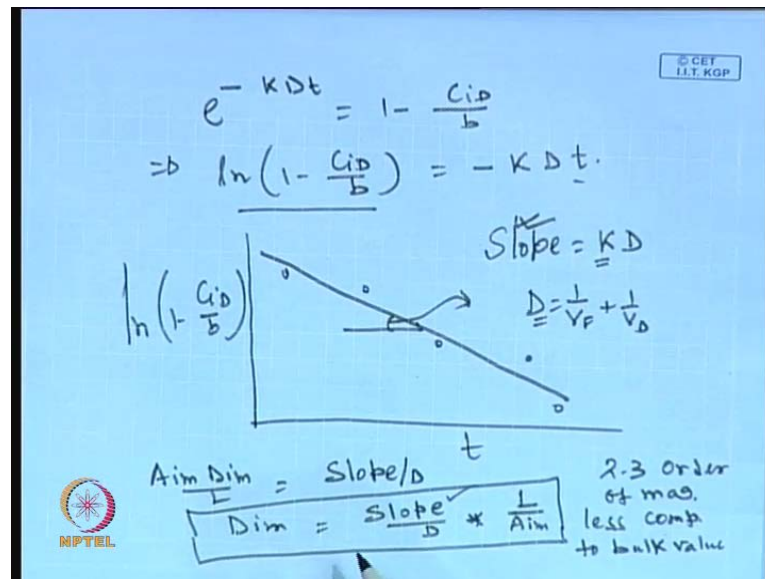 © CET
I.I.T. KGP
e^{-KDt} = 1 - \frac{C_{iD}}{b}
⇒ ln(1 - \frac{C_{iD}}{b}) = -KDt.
Slope = KD
D = \frac{1}{V_F} + \frac{1}{V_D}
ln(1 - \frac{C_{iD}}{b})
t
\frac{Aim Dim}{L} = Slope/D
Dim = \frac{Slope}{D} * \frac{L}{Aim}
2-3 order
of mag.
less comp
to bulk value
NPTEL